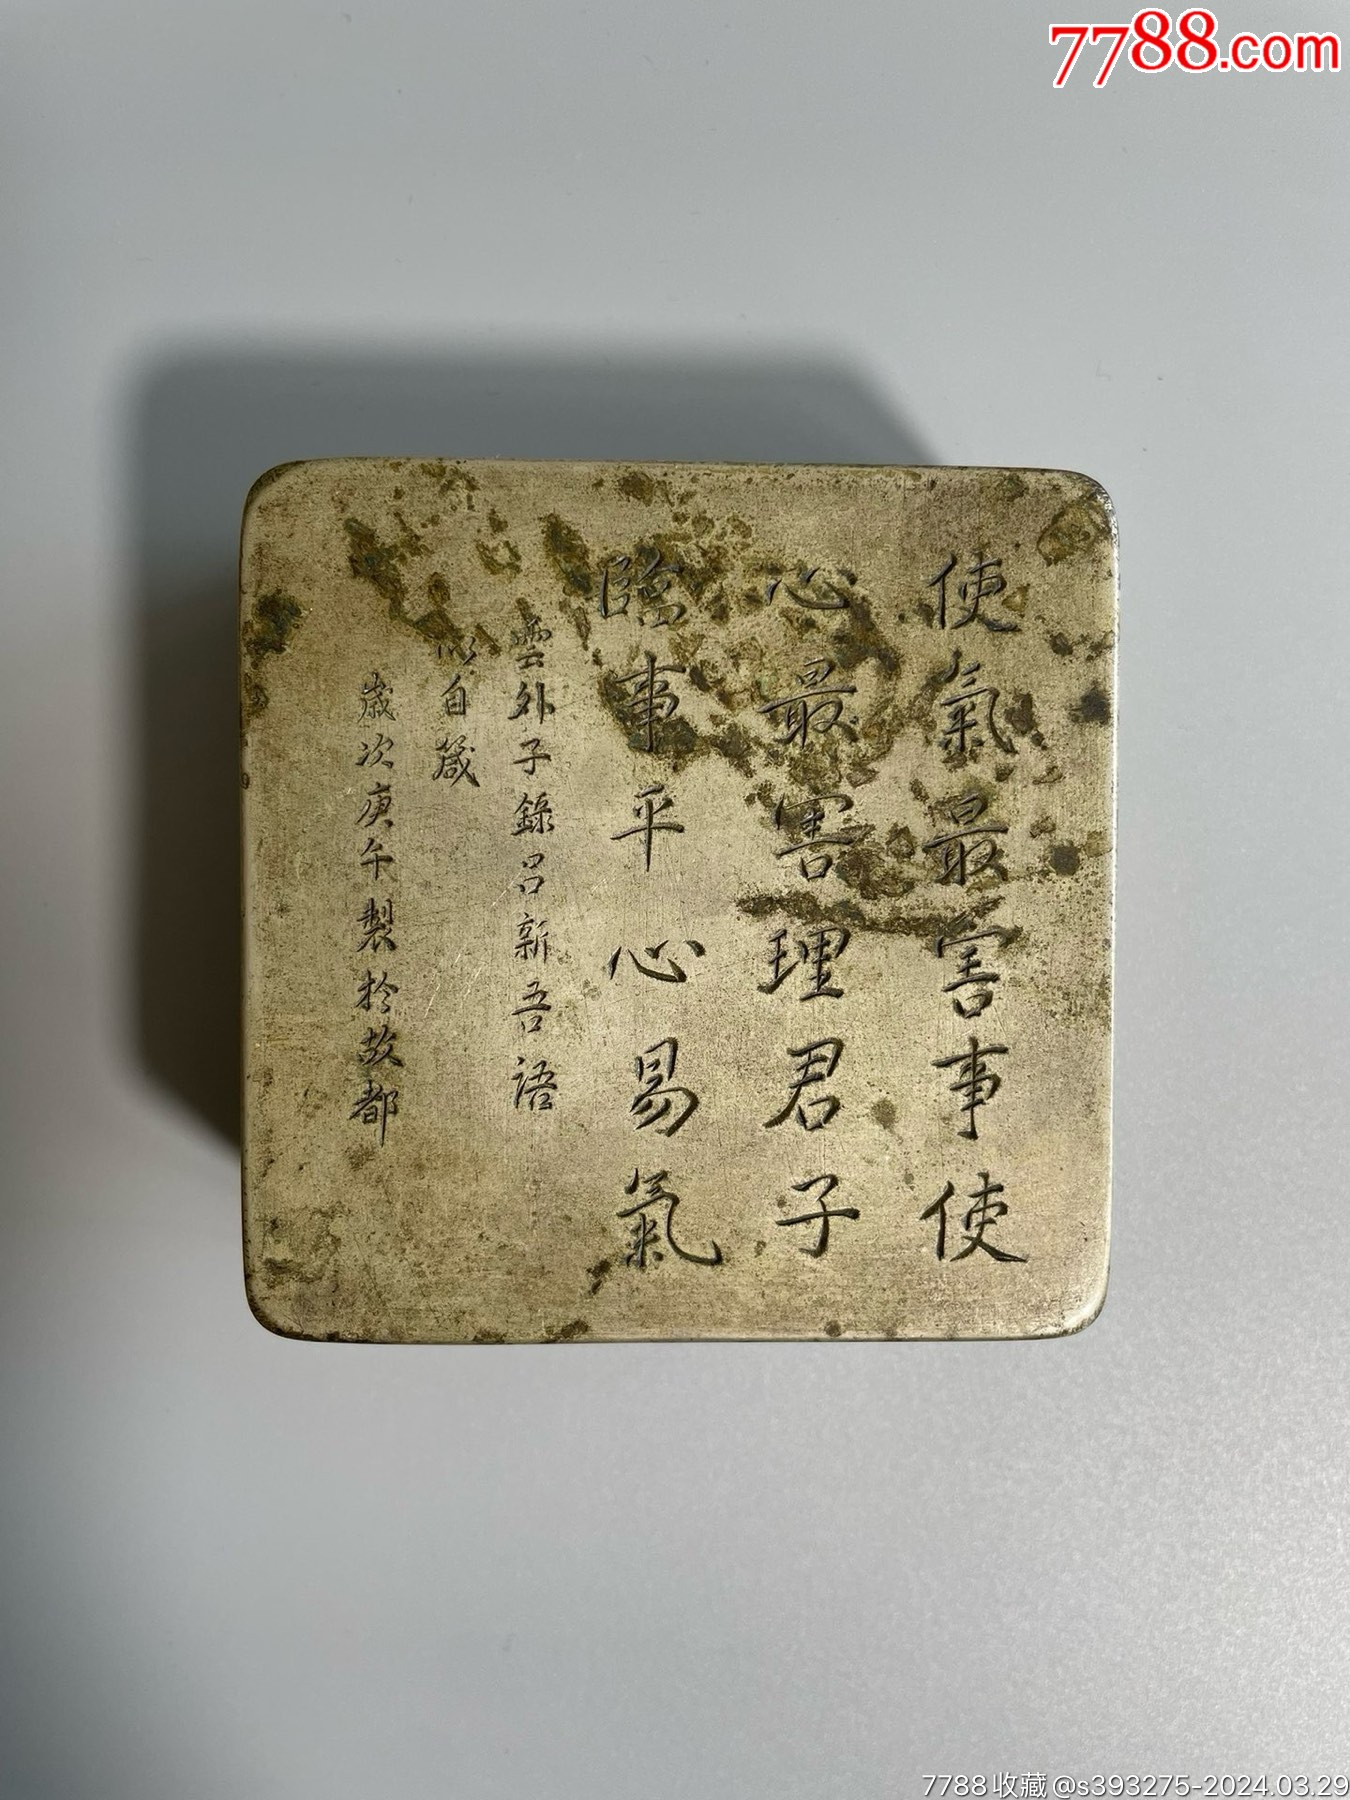 7788.com
使氣最害事使
心最害理君子
臨事平心易氣
雲外子錄呂新吾語
以自箴
歲次庚午製於故都
7788收藏@s393275-2024.03.29